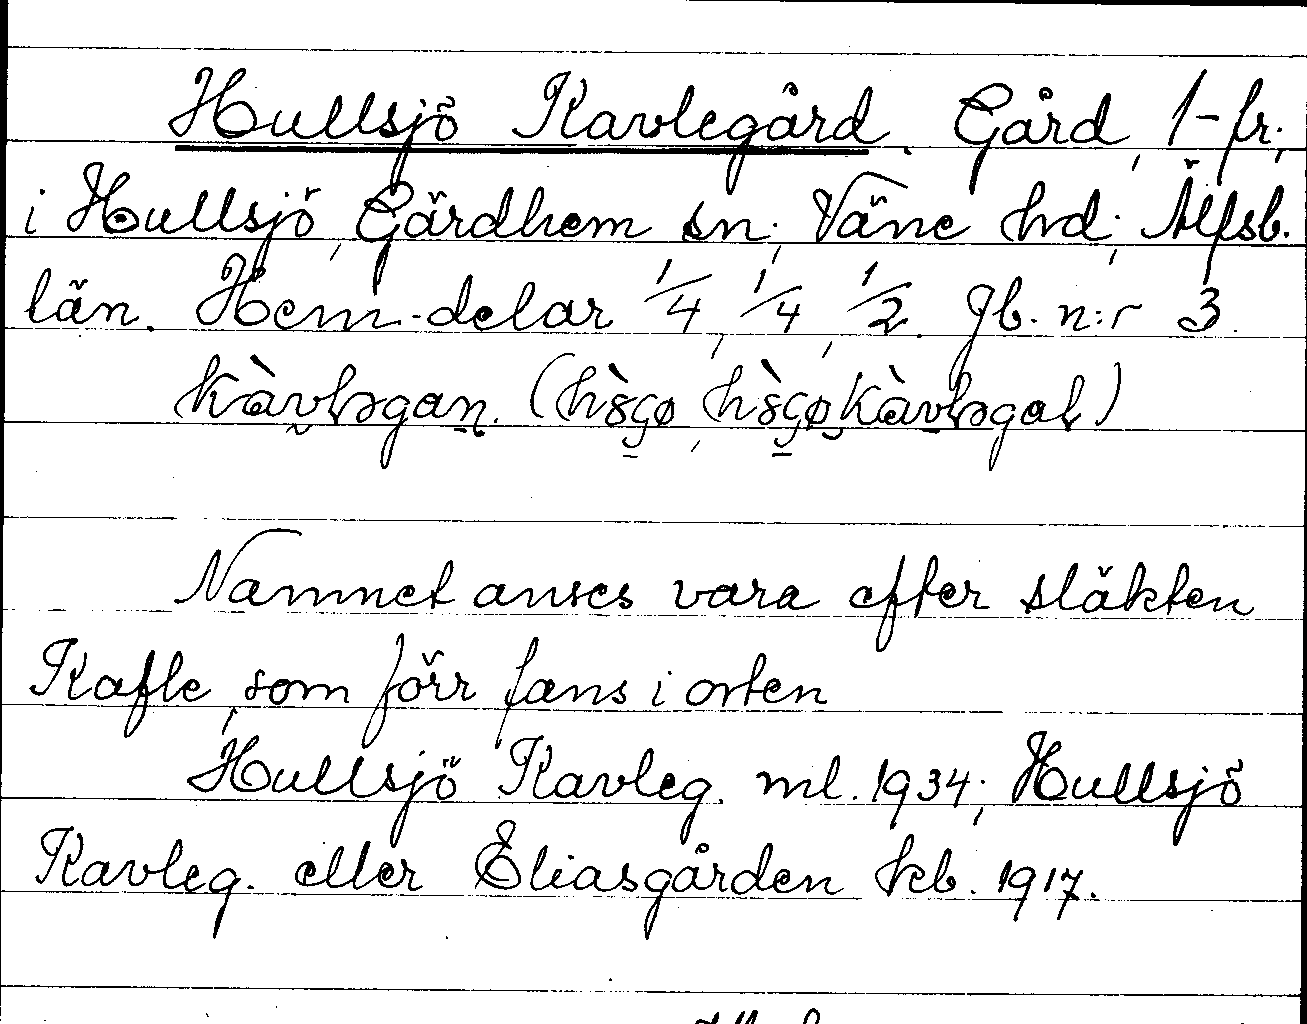 Hullsjö Kavlegård. Gård, 1-fr.,
i Hullsjö, Gärdhem sn; Väne hd; Älfsb.
län. Hem.-delar 1/4, 1/4, 1/2. Jb. n:r 3.
Namnet anses vara efter släkten
Kafle, som förr fans i orten
Hullsjö Kavleg. ml. 1934; Hullsjö
Kavleg. eller Eliasgården kb. 1917.